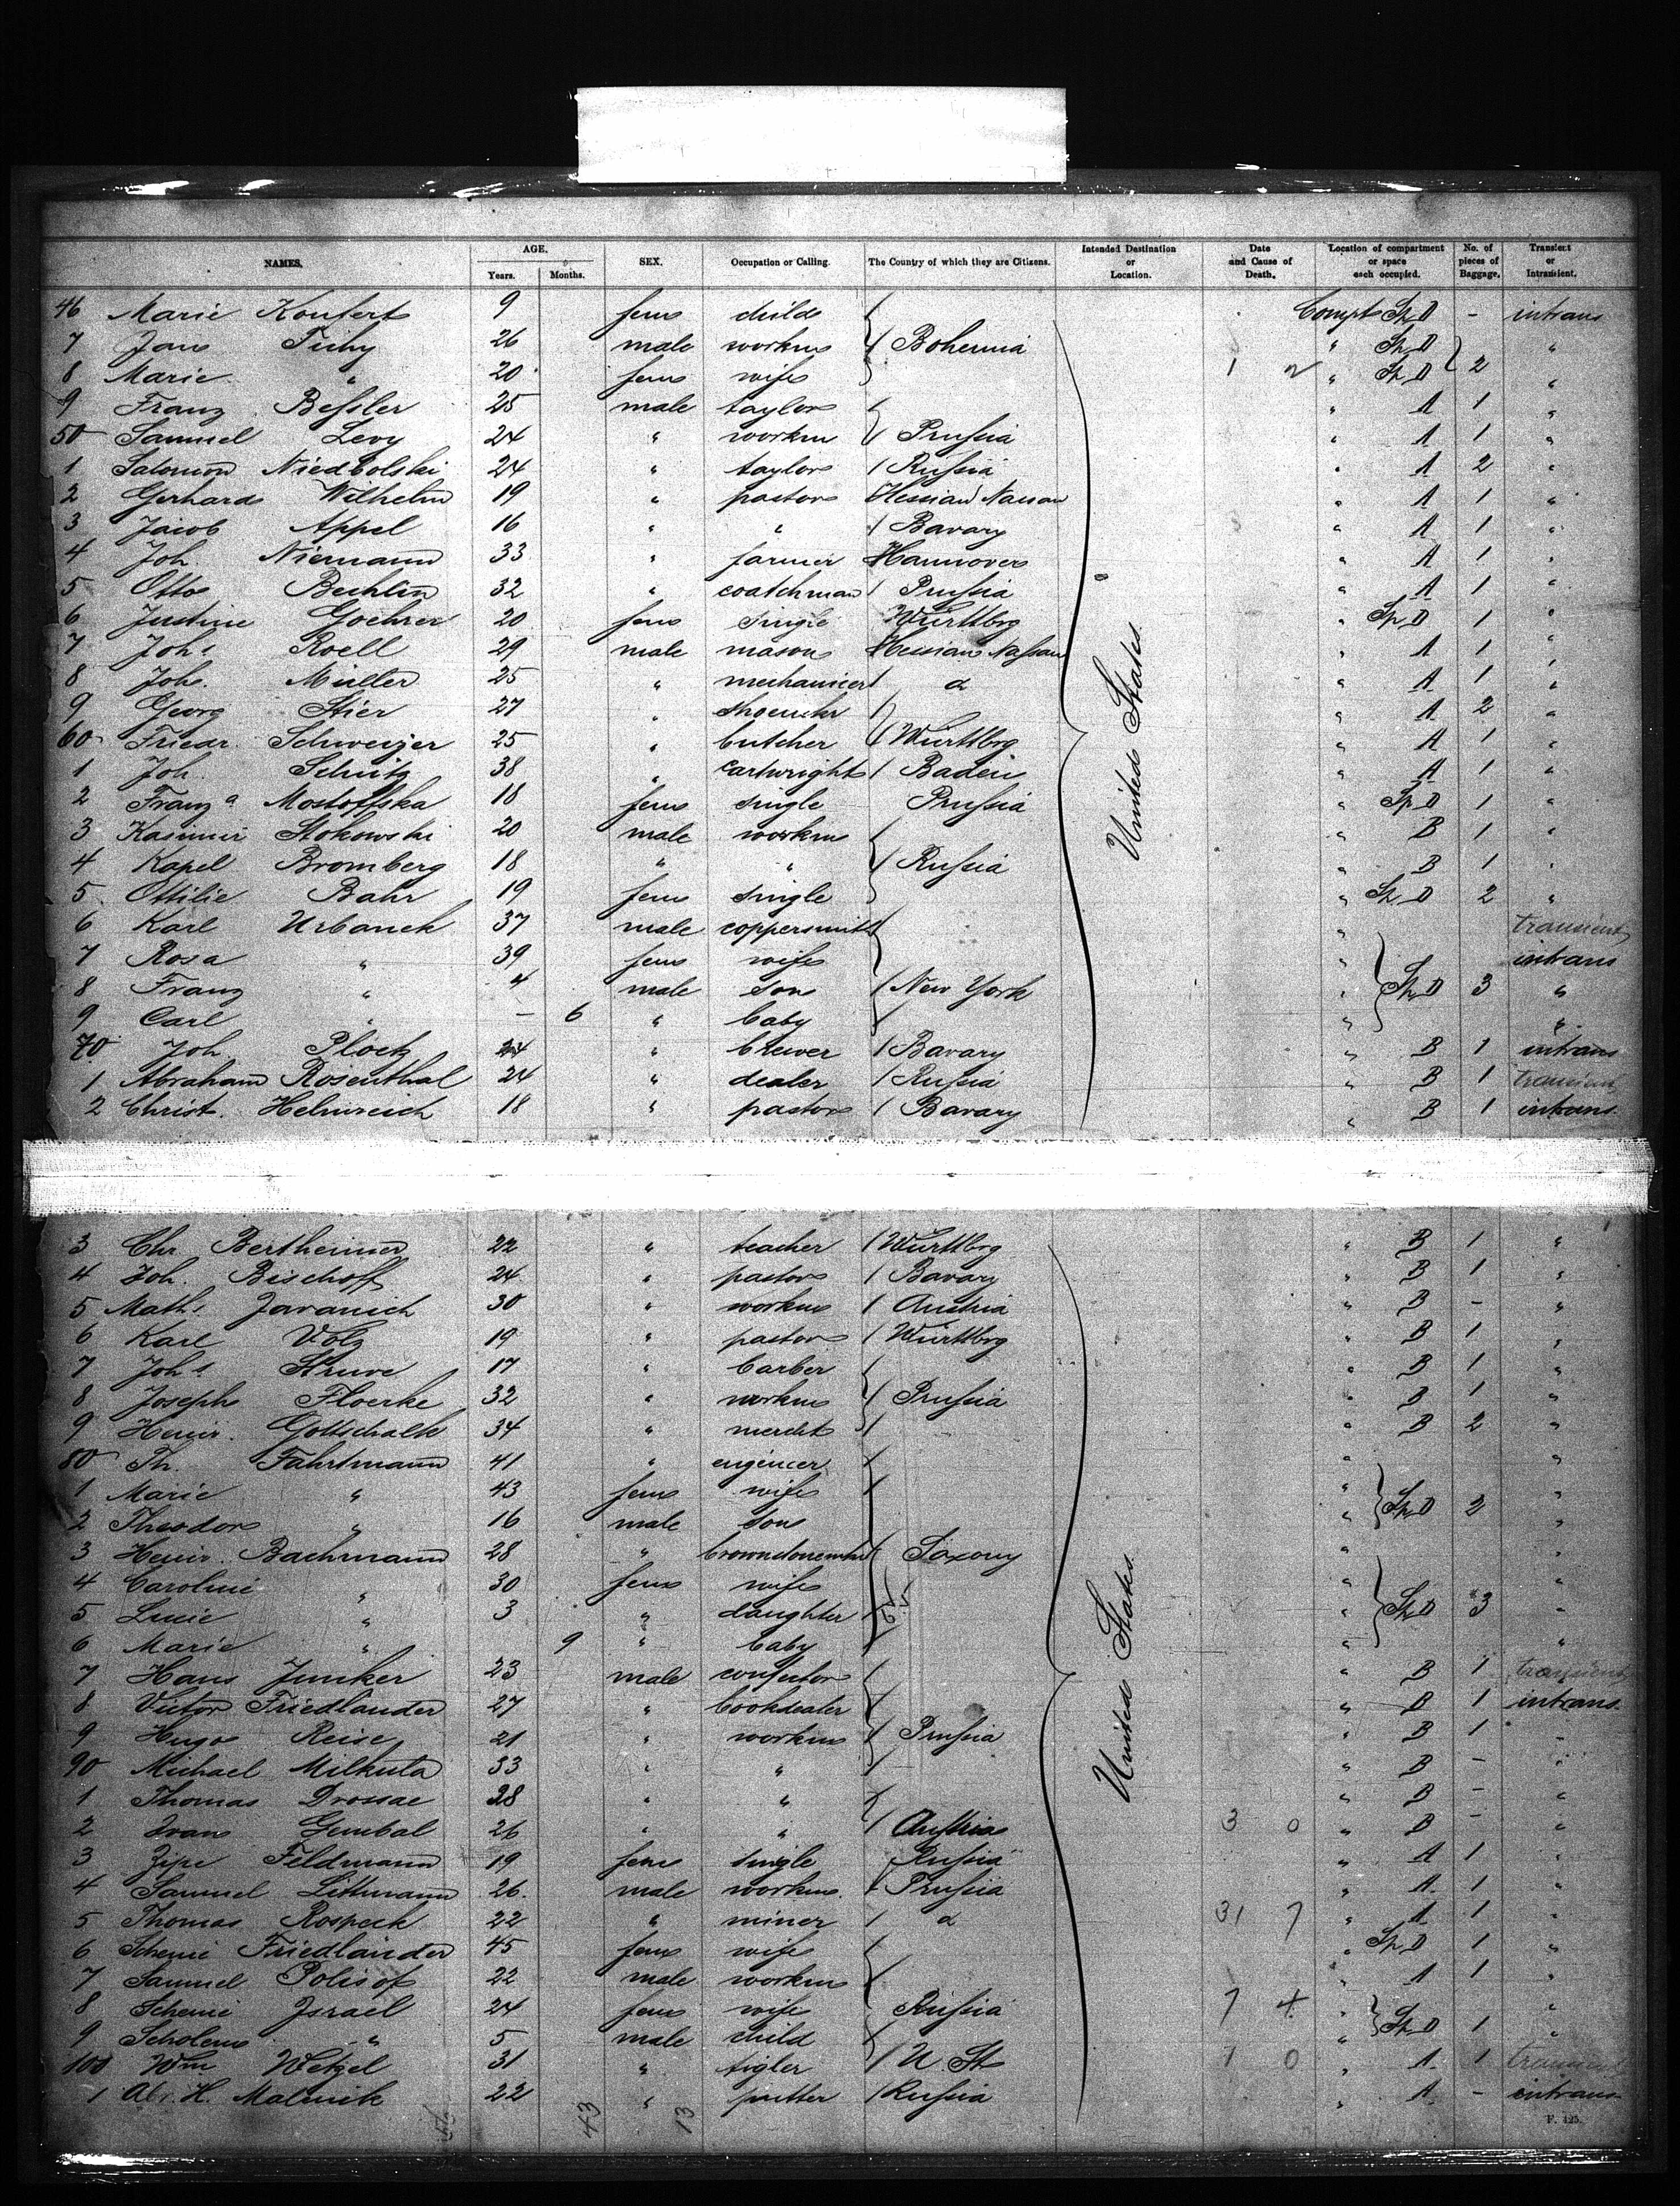 NAMES. AGE. Years. Months. SEX. Occupation or Calling. The Country of which they are Citizens. Intended Destination or Location. Date and Cause of Death. Location of compartment or space each occupied. No. of pieces of Baggage. Transient or Intransient.
46 Marie 9 fem child Compt Sp D - intrans
7 Jan Tichy 26 male workm Bohemia " Sp D "
8 Marie " 20 fem wife 1 2 " Sp D 2 "
9 Franz Beßler 25 male taylor " A 1 "
50 Samuel Levy 24 " workm Prußia " A 1 "
1 Salomon Niedbolski 24 " taylor Rußia " A 2 "
2 Gerhard Wilhelm 19 " pastor Hessian Nassau " A 1 "
3 Jacob Appel 16 " " Bavary " A 1 "
4 Joh. Niemann 33 " farmer Hannover " A 1 "
5 Otto Bechlin 32 " coatchman Prußia " A 1 "
6 Justine Goehrer 20 fem single Württbrg " Sp D 1 "
7 Johs Roell 29 male mason Hessian Naßau " A 1 "
8 Joh. Müller 25 " mechanicer " A 1 "
9 Georg Stier 27 " " A 2 "
60 Friedr. Schweizer 25 " butcher Württbrg " A 1 "
1 Joh. Schütz 38 " cartwright Baden " A 1 "
2 Franza Mostoffska 18 fem single Prußia " Sp D 1 "
3 Kasimir Stokowski 20 male workm " B 1 "
4 Kapel Bromberg 18 " " Rußia " B 1 "
5 Ottilie Bahr 19 fem single " Sp D 2 "
6 Karl Urbanek 37 male coppersmith " transient
7 Rosa " 39 fem wife " intrans
8 Franz " 4 male son New York " Sp D 3 "
9 Carl " - 6 " baby " "
70 Joh Ploetz 24 " brewer Bavary " B 1 intrans
1 Abraham Rosenthal 24 " dealer Rußia " B 1 transient
2 Christ. Helmreich 18 " pastor Bavary " B 1 intrans.
United States.
3 Chr. Bertheimer 22 " teacher Württbrg " B 1 "
4 Joh. Bischoff 24 " pastor Bavary " B 1 "
5 Maths Javanich 30 " workm Austria " B - "
6 Karl Volz 19 " pastor Württbrg " B 1 "
7 Johs Struve 17 " barber " B 1 "
8 Joseph Floerke 32 " workm Prußia " B 1 "
9 Heinr. Gottschalk 34 " mercht " B 2 "
80 Th. Fahrtmann 41 " engineer " "
1 Marie " 43 fem wife " Sp D 2 "
2 Theodor " 16 male son " "
3 Heinr. Bachmann 28 " Saxony " "
4 Caroline " 30 fem wife "
5 Lucie " 3 " daughter " Sp D 3 "
6 Marie " 9 " baby " "
7 Hans Junker 23 male confector " B 1 transient
8 Victor Friedlander 27 " bookdealer " B 1 intrans.
9 Hugo Reise 21 " workm Prußia " B 1 "
90 Michael Milkuta 33 " " " B - "
1 Thomas Drossae 28 " " " B - "
2 Ivan Gembal 26 " " Austria 3 0 " B - "
3 Zipe Feldmann 19 fem single Rußia " A 1 "
4 Samuel Littmann 26. male workm Prußia " A. 1 "
5 Thomas Rospeck 22 " miner 31 7 " A 1 "
6 Scheine Friedländer 45 fem wife " Sp D 1 "
7 Samuel Polisof 22 male workm " A 1 "
8 Scheine Israel 24 fem wife Rußia 7 4 " Sp D 1 "
9 Scholem " 5 male child " "
100 Wm Wetzel 31 " tigler U. St 1 0 " A. 1 transient
1 Abr. H. Malnik 22 " putter Rußia " A - intrans.
United States.
43 13
F. 125.